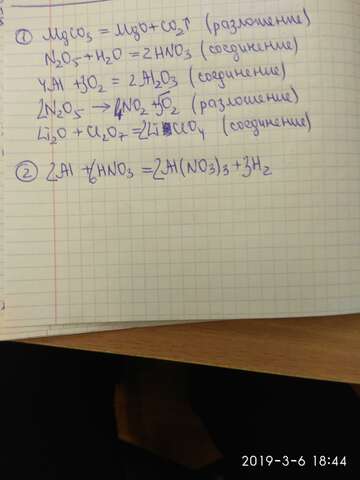 ① MgCO₃ = MgO + CO₂↑ (разложение)
N₂O₅ + H₂O = 2HNO₃ (соединение)
4Al + 3O₂ = 2Al₂O₃ (соединение)
2N₂O₅ → 4NO₂ + 5O₂ (разложение)
Li₂O + Cl₂O₇ = 2LiClO₄ (соединение)
② 2Al + 6HNO₃ = 2Al(NO₃)₃ + 3H₂
2019-3-6 18:44